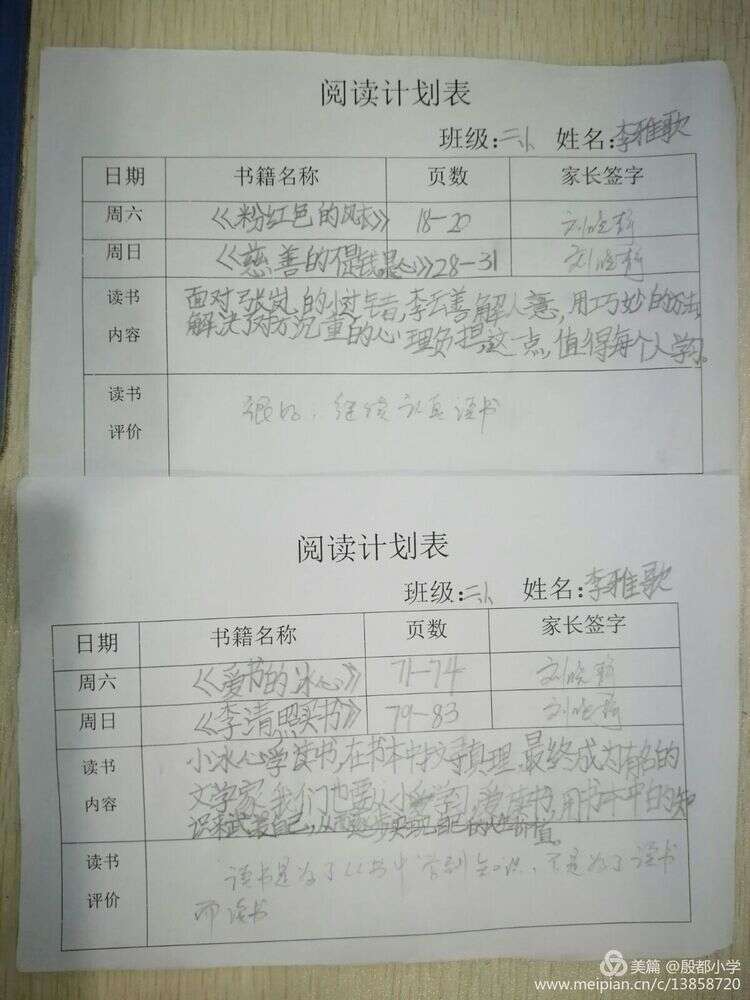 阅读计划表
班级: 姓名:李雅歌
日期 书籍名称 页数 家长签字
周六 《粉红色的风衣》 18-20 刘晓
周日 《慈善的不是钱是心》 28-31 刘晓
读书 面对张岚的过者,李云善解人意,用巧妙的方法
内容 解决对方沉重的心理负担,这一点,值得每个人学习。
读书 很好,继续认真读书
评价
阅读计划表
班级: 姓名:李雅歌
日期 书籍名称 页数 家长签字
周六 《爱书的冰心》 71-74 刘晓
周日 《李清照买书》 79-83 刘晓
读书 小冰心学读书,在书本中找寻真理,最终成为有名的
内容 文学家,我们也要从小学习,爱读书,用书本中的知
识来武装自己,从而逐步实现自己的人生价值。
读书 读书是为了从书中学到知识,不是为了读书
评价 而读书
美篇 @殷都小学
www.meipian.cn/c/13858720